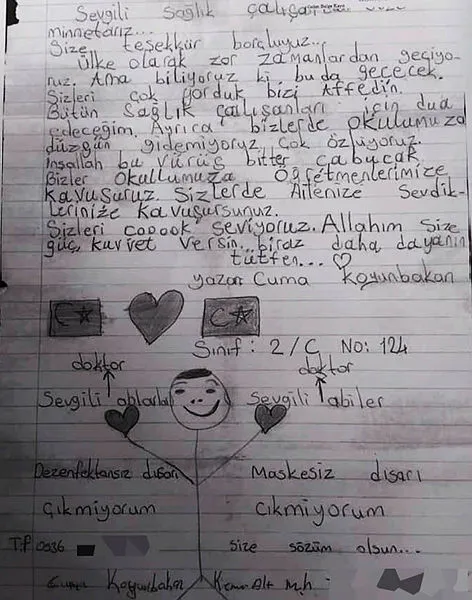 Sevgili Sağlık çalışan
minnetarız...
Size teşekkür borçluyuz...
Ülke olarak zor zamanlardan geçiyo-
ruz. Ama biliyoruz ki bu da geçecek.
Sizleri çok yorduk bizi Affedin.
Bütün Sağlık çalışanları için dua
edeceğim. Ayrıca bizlerde okulumuza
düzgün gidemiyoruz çok özlüyoruz.
inşallah bu virüs bitter çabucak
Bizler Okullumuza Öğretmenlerimize
Kavuşuruz. Sizlerde Ailenize Sevdik-
lerinize kavuşursunuz.
Sizleri cooook seviyoruz. Allahım size
güç, kuvvet versin... biraz daha dayanın
tütfen...
yazan Cuma Koyunbakan
Sınıf: 2/C No: 124
doktor doktor
Sevgili ablarla Sevgili abiler
Dezenfektansız dışarı Maskesiz dısarı
Çıkmıyorum Cıkmiyorum
Tlf 0536 size sözüm olsun...
Cuma Koyunbakan mh.